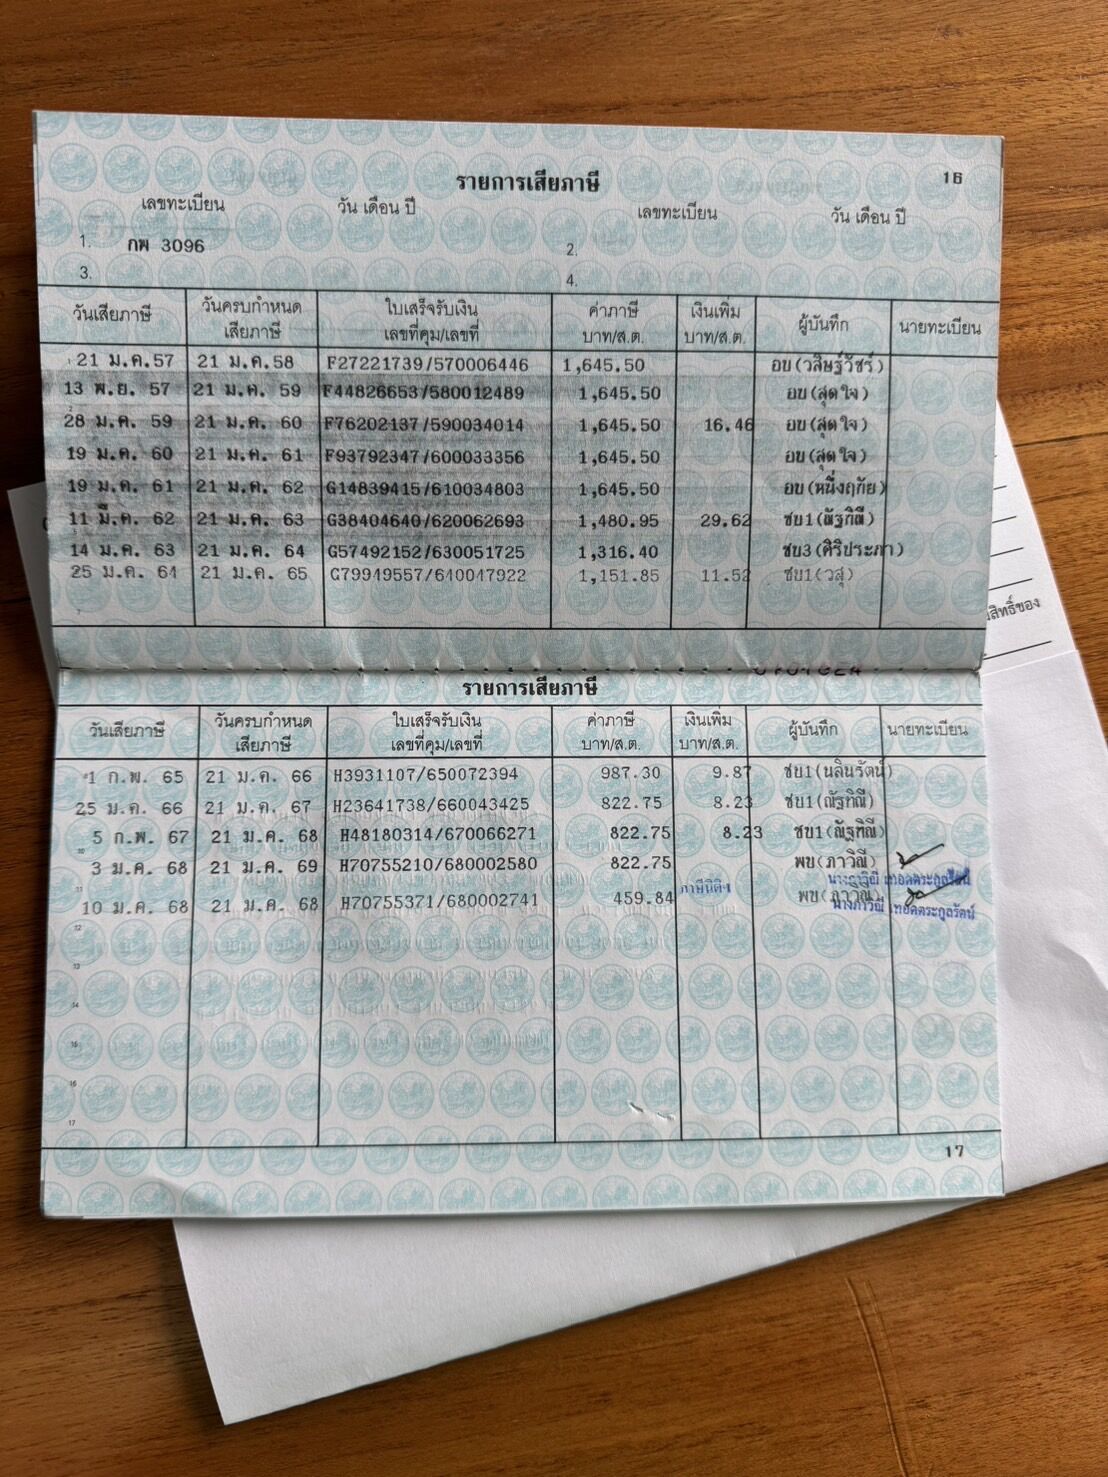 รายการเสียภาษี 16
เลขทะเบียน วัน เดือน ปี เลขทะเบียน วัน เดือน ปี
1. กพ 3096 2.
3. 4.
วันเสียภาษี วันครบกำหนดเสียภาษี ใบเสร็จรับเงิน เลขที่คุม/เลขที่ ค่าภาษี บาท/ส.ต. เงินเพิ่ม บาท/ส.ต. ผู้บันทึก นายทะเบียน
21 ม.ค.57 21 ม.ค.58 F27221739/570006446 1,645.50 อบ(วสิษฐ์วัชร์)
13 พ.ย. 57 21 ม.ค. 59 F44826653/580012489 1,645.50 อบ(สุดใจ)
28 ม.ค. 59 21 ม.ค. 60 F76202137/590034014 1,645.50 16.46 อบ(สุดใจ)
19 ม.ค. 60 21 ม.ค. 61 F93792347/600033356 1,645.50 อบ(สุดใจ)
19 ม.ค. 61 21 ม.ค. 62 G14839415/610034803 1,645.50 อบ(หนึ่งฤกัย)
11 มี.ค. 62 21 ม.ค. 63 G38404640/620062693 1,480.95 29.62 ชบ1(ณัฐทิณี)
14 ม.ค. 63 21 ม.ค. 64 G57492152/630051725 1,316.40 ชบ3(ศิริประภา)
25 ม.ค. 64 21 ม.ค. 65 G79949557/640047922 1,151.85 11.52 ชบ1(วสุ)
รายการเสียภาษี
วันเสียภาษี วันครบกำหนดเสียภาษี ใบเสร็จรับเงิน เลขที่คุม/เลขที่ ค่าภาษี บาท/ส.ต. เงินเพิ่ม บาท/ส.ต. ผู้บันทึก นายทะเบียน
1 ก.พ. 65 21 ม.ค. 66 H3931107/650072394 987.30 9.87 ชบ1(นลินรัตน์)
25 ม.ค. 66 21 ม.ค. 67 H23641738/660043425 822.75 8.23 ชบ1(ณัฐทิณี)
5 ก.พ. 67 21 ม.ค. 68 H48180314/670066271 822.75 8.23 ชบ1(ณัฐทิณี)
3 ม.ค. 68 21 ม.ค. 69 H70755210/680002580 822.75 พบ(ภาวิณี)
นางภาวิณี เทอดตระกูลรัตน์
10 ม.ค. 68 21 ม.ค. 68 H70755371/680002741 459.84 พบ(ภาวิณี)
นางภาวิณี เทอดตระกูลรัตน์
12
13
14
15
16
17
17
สิทธิ์ของ